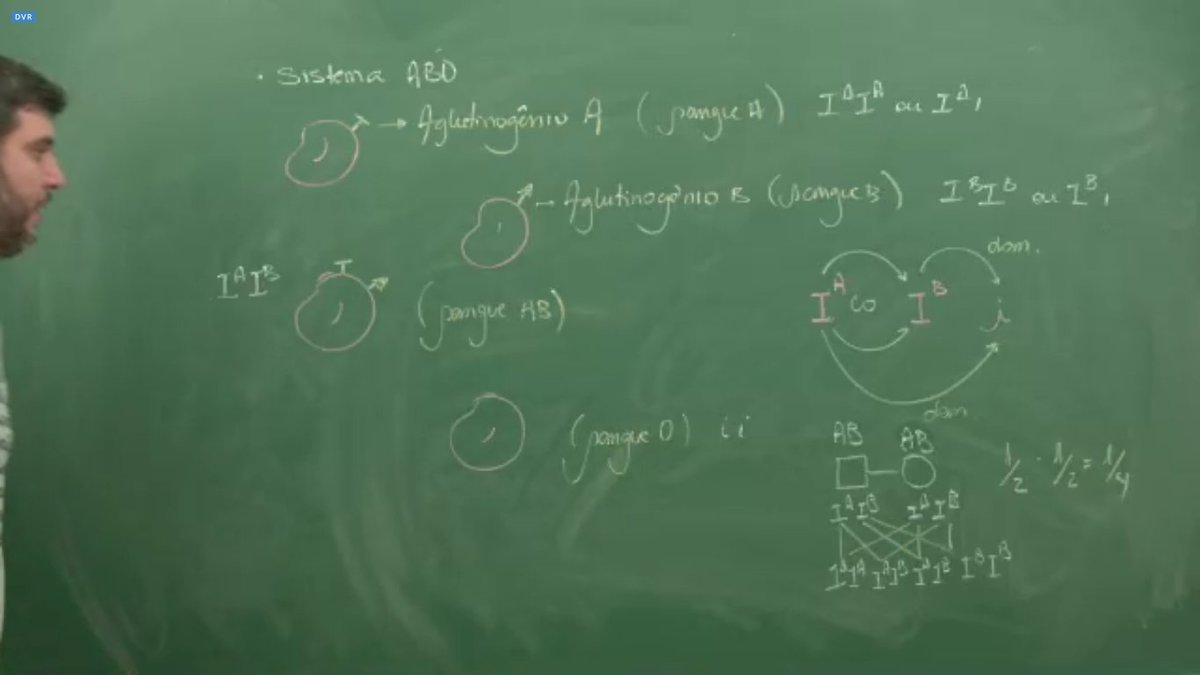 DVR
• Sistema ABO
→ Aglutinogênio A (sangue A) IᴬIᴬ ou Iᴬi
→ Aglutinogênio B (sangue B) IᴮIᴮ ou Iᴮi
dom.
IᴬIᴮ (sangue AB)
Iᴬ co Iᴮ i
dom.
(sangue O) ii
AB AB
1/2 · 1/2 = 1/4
IᴬIᴮ IᴬIᴮ
IᴬIᴬ IᴬIᴮ IᴬIᴮ IᴮIᴮ